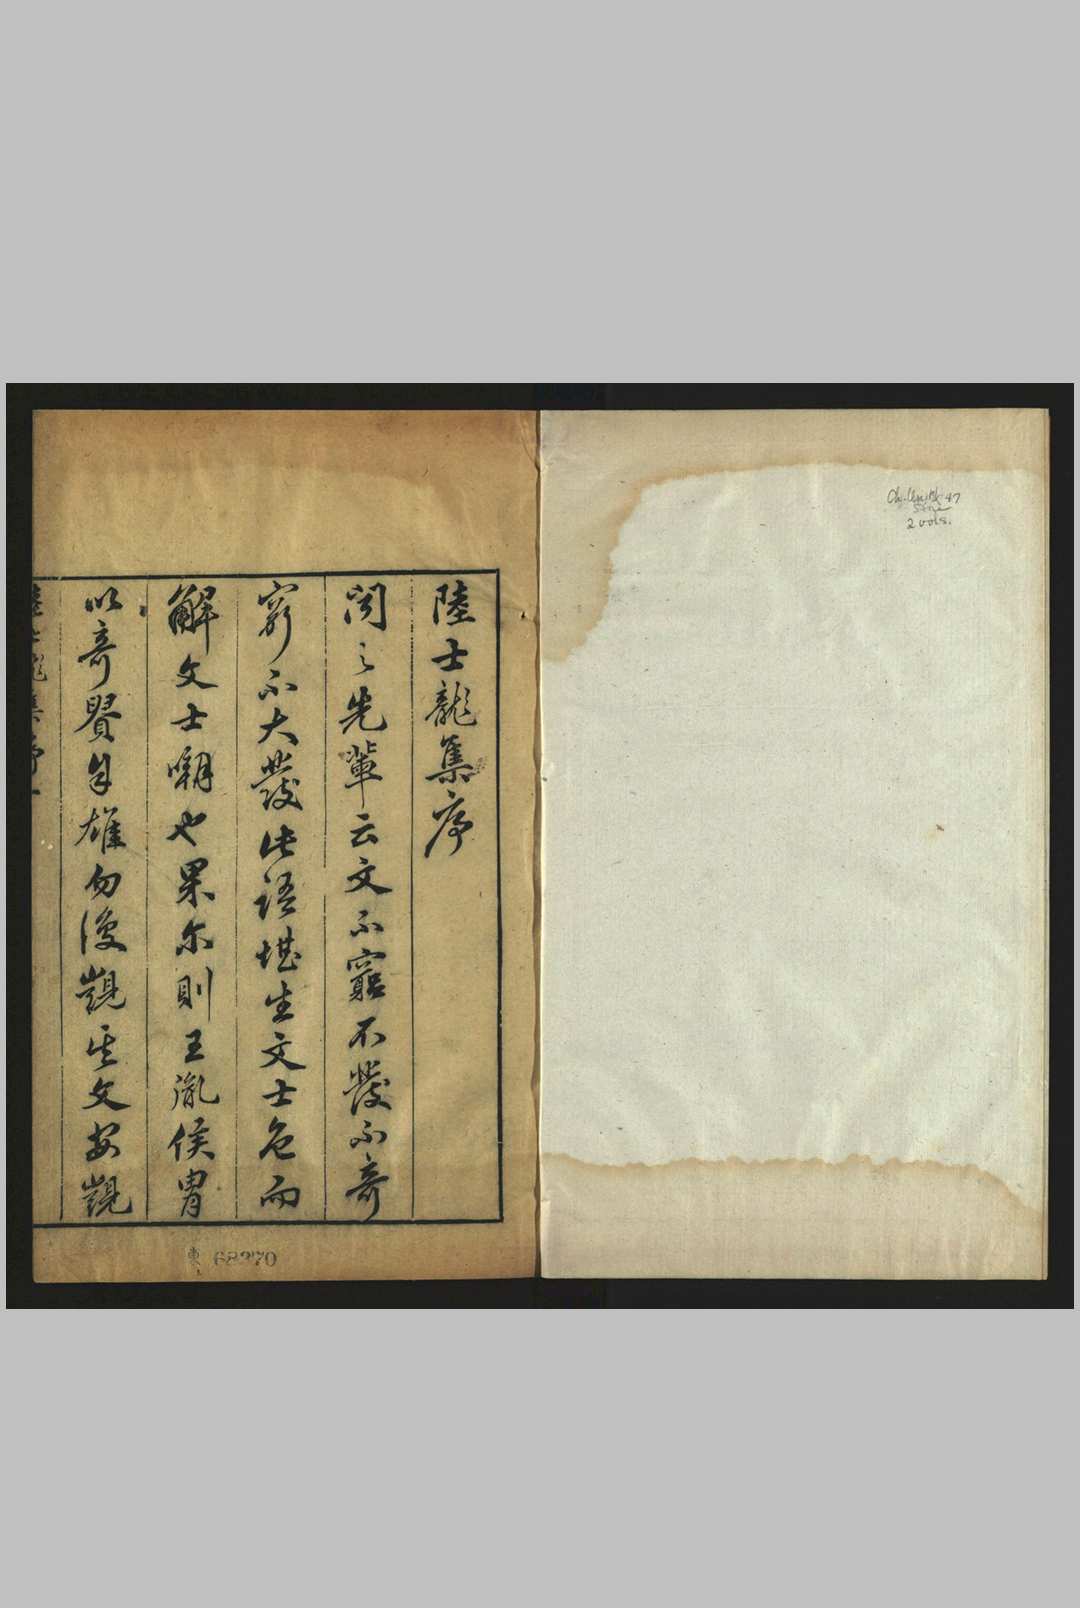 陸士龍集序
聞之先輩云文不窮不發不奇
窮不大發此語堪生文士色而
解文士嘲也果尔則王胤侯胄
以奇賢自雄勿復觀其文安觀
陸士龍集序 一
東 68270
2 vols.